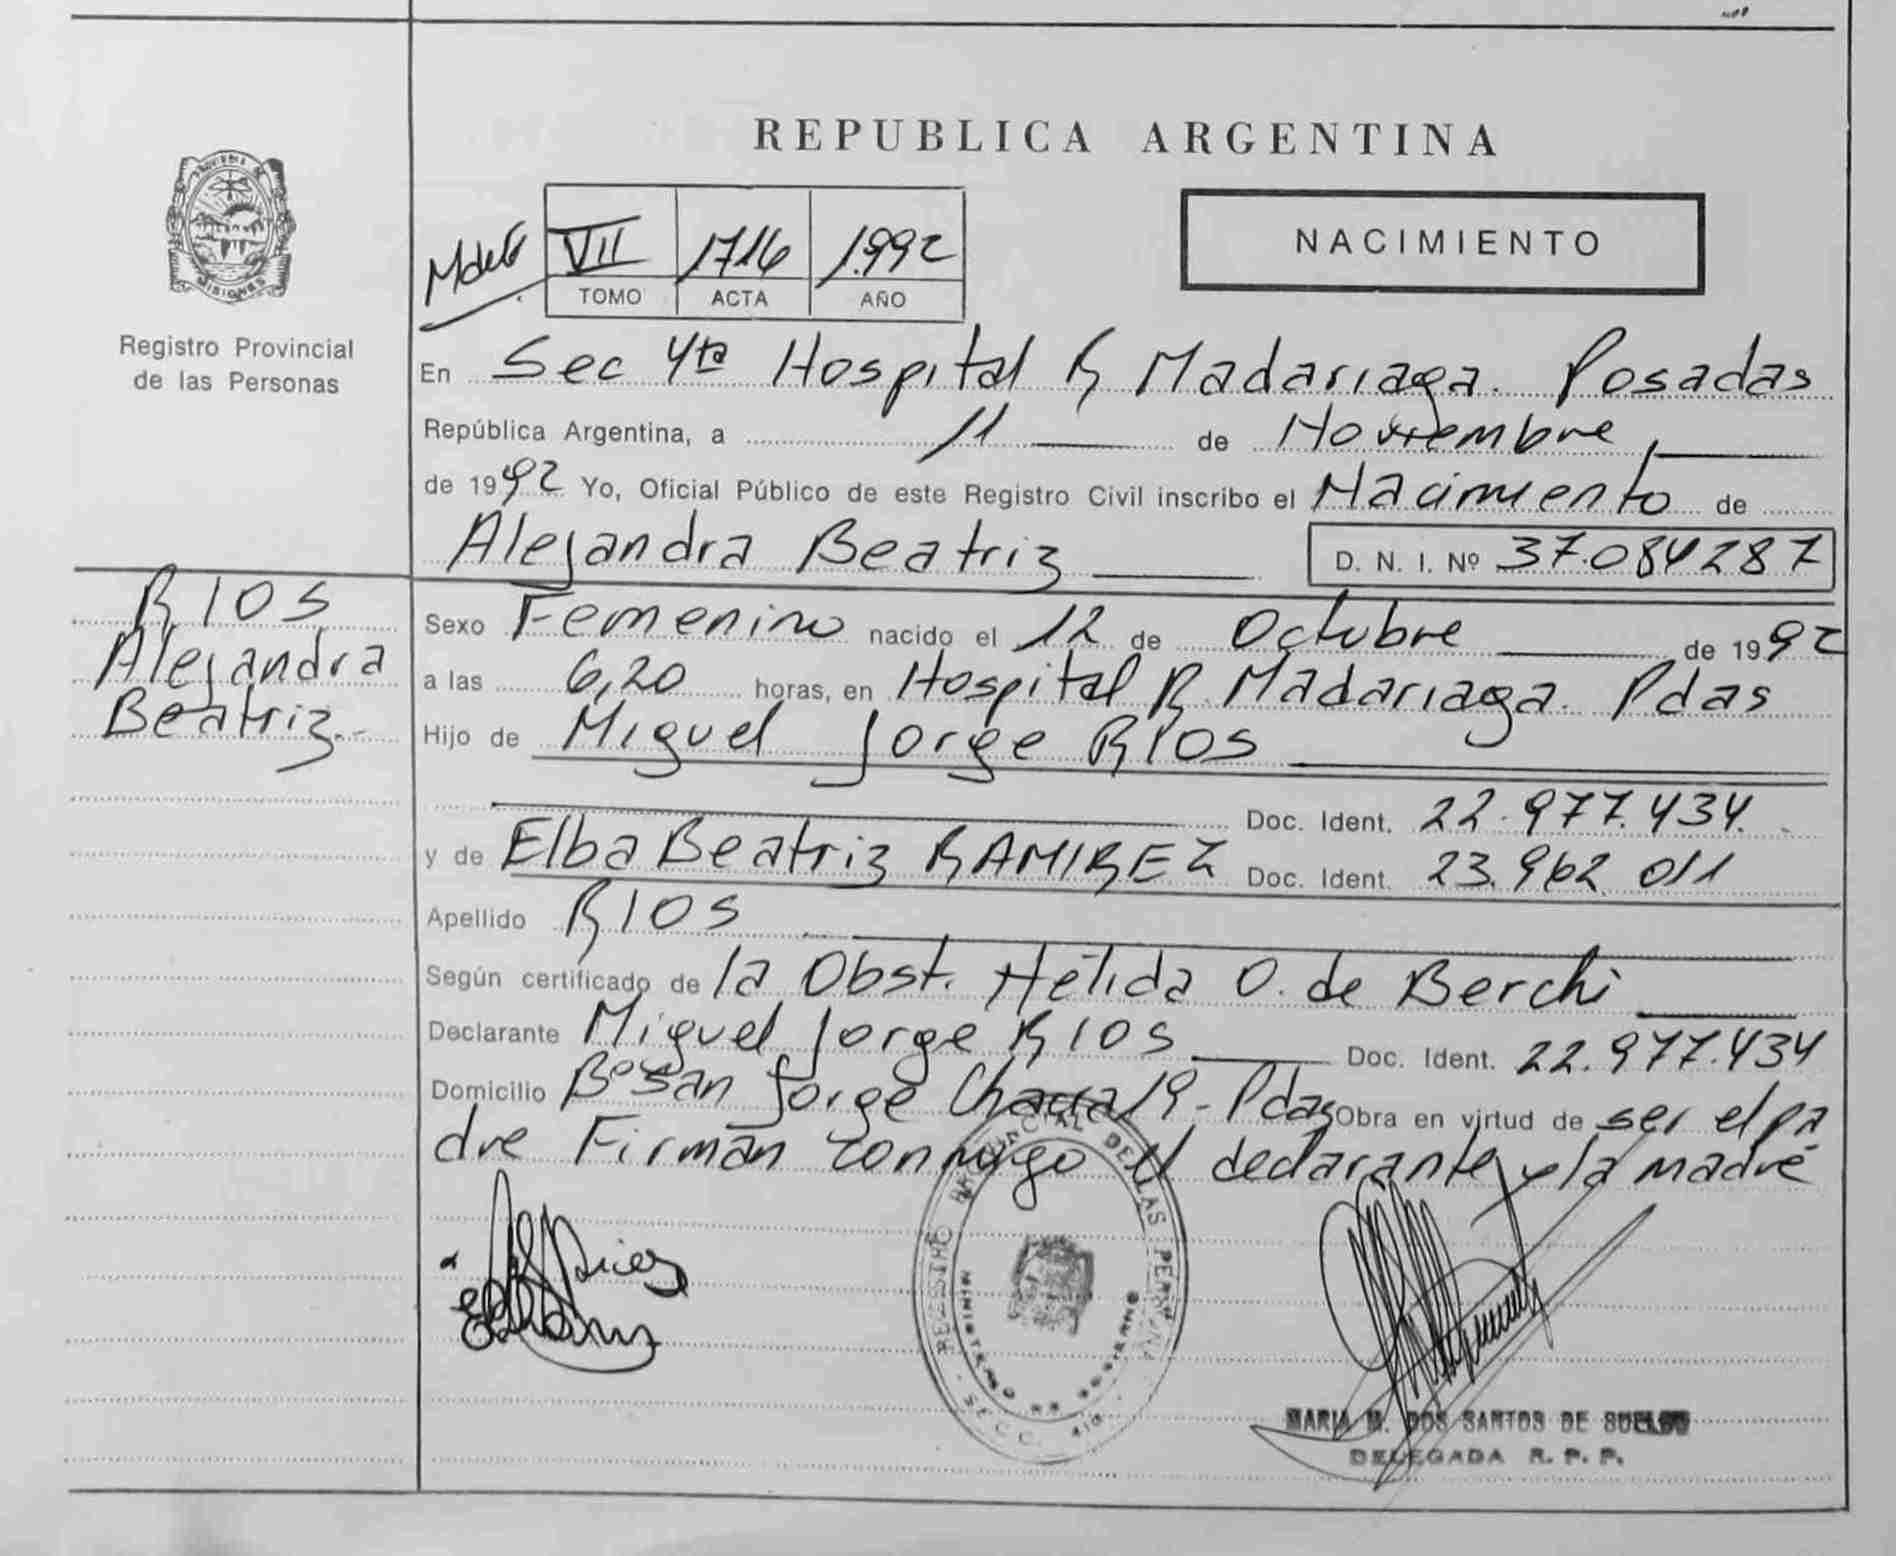 REPUBLICA ARGENTINA
NACIMIENTO
VII 1716 1.992
TOMO ACTA AÑO
MISIONES
Registro Provincial
de las Personas
En Sec 4ta Hospital R Madariaga. Posadas
República Argentina, a 11 de Noviembre
de 1992 Yo, Oficial Público de este Registro Civil inscribo el Nacimiento de
Alejandra Beatriz D. N. I. Nº 37.084287
RIOS
Alejandra
Beatriz.-
Sexo Femenino nacido el 12 de Octubre de 1992
a las 6,20 horas, en Hospital R. Madariaga. Pdas
Hijo de Miguel Jorge RIOS
Doc. Ident. 22.977.434.
y de Elba Beatriz RAMIREZ Doc. Ident. 23.962.011
Apellido RIOS
Según certificado de la Obst. Hélida O. de Berchi
Declarante Miguel Jorge RIOS Doc. Ident. 22.977.434
Domicilio Bº San Jorge Chacra 19 - Pdas Obra en virtud de ser el pa
dre Firman conmigo el declarante y la madre
REGISTRO PROVINCIAL DE LAS PERSONAS
MINISTERIO DE GOBIERNO
SECC. 4ta
MARIA M. DOS SANTOS DE
DELEGADA R. P. P.